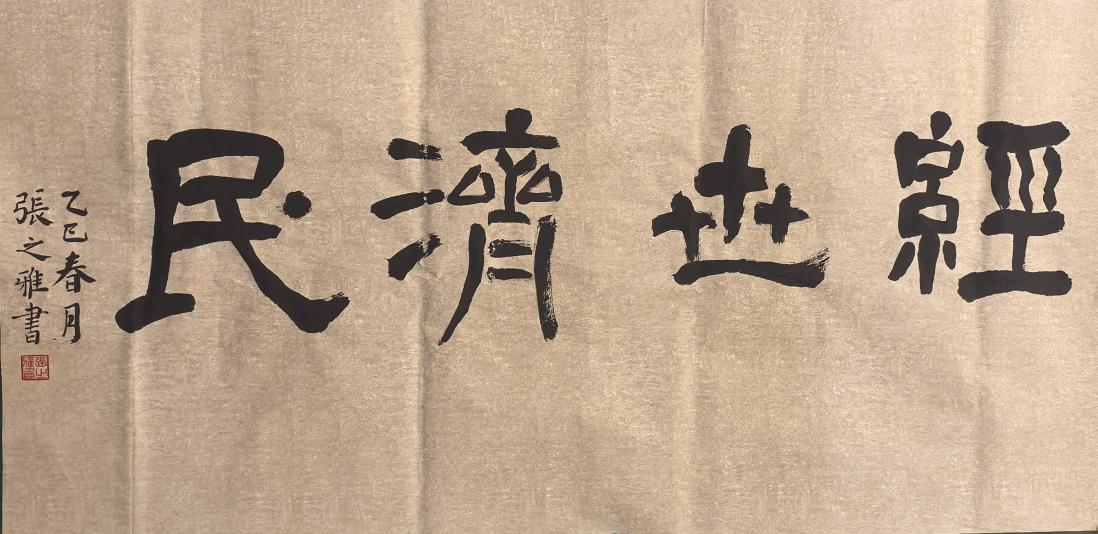 經世濟民
乙巳春月
張之雅書